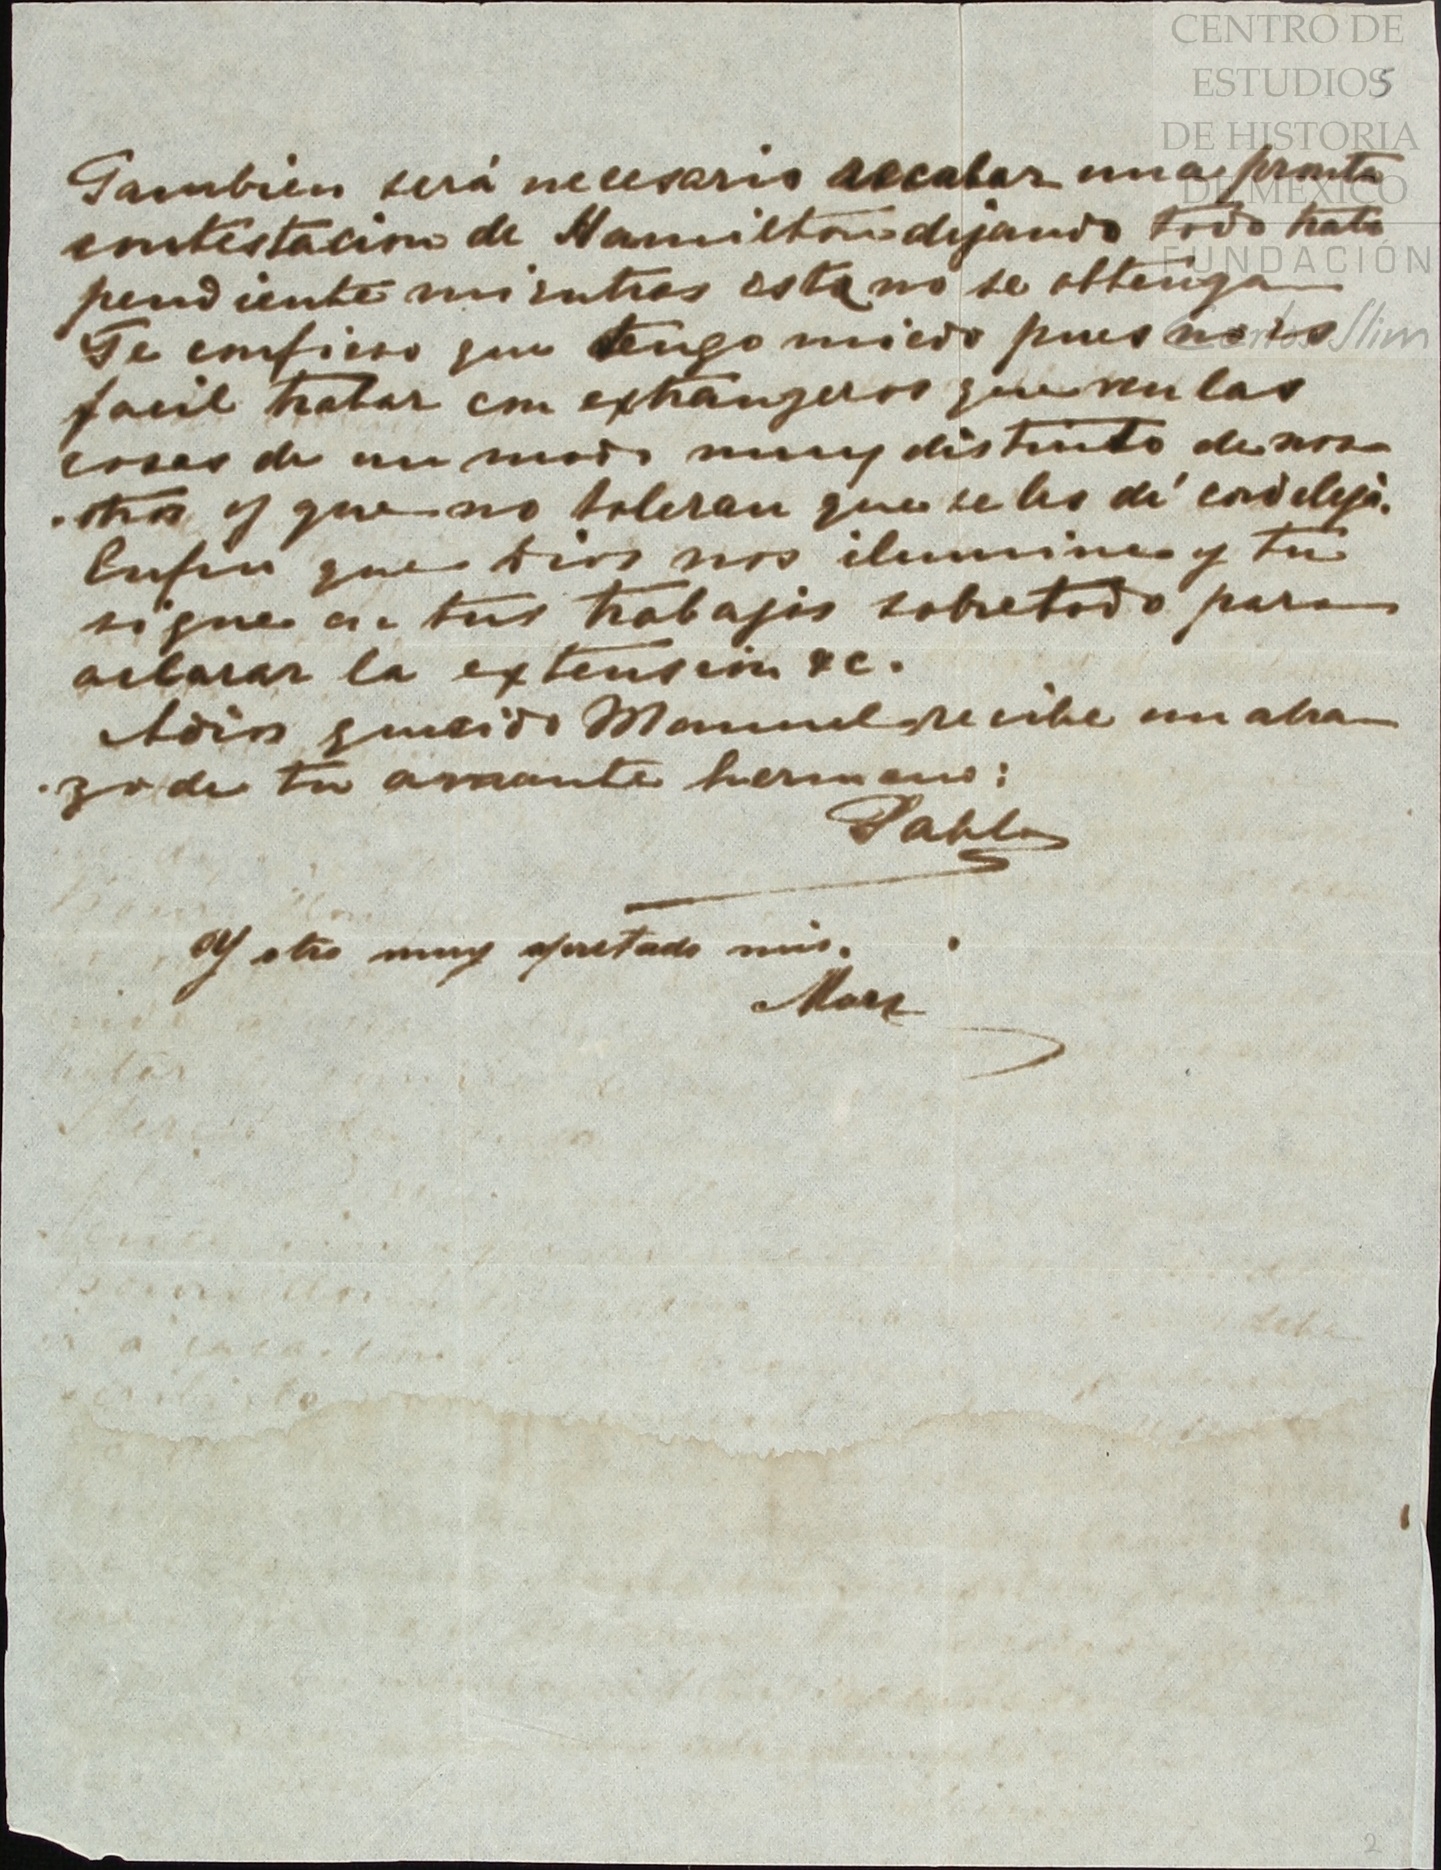 CENTRO DE
ESTUDIOS
DE HISTORIA
DE MEXICO
FUNDACIÓN
Carlos Slim
5
Tambien será necesario recabar una pronta
contestacion de Hamilton dejando todo trato
pendiente mientras esta no se obtenga
Te confieso que tengo miedo pues no es
facil tratar con extrangeros que ven las
cosas de un modo muy distinto de noso
tros y que no toleran que se les dé cordelejo.
Enfin que Dios nos ilumine y tu
sigue en tus trabajos sobretodo para
aclarar la extension &c.
Adios querido Manuel recibe un abra
zo de tu amante hermano:
Pablo
Y otro muy apretado mio.
2